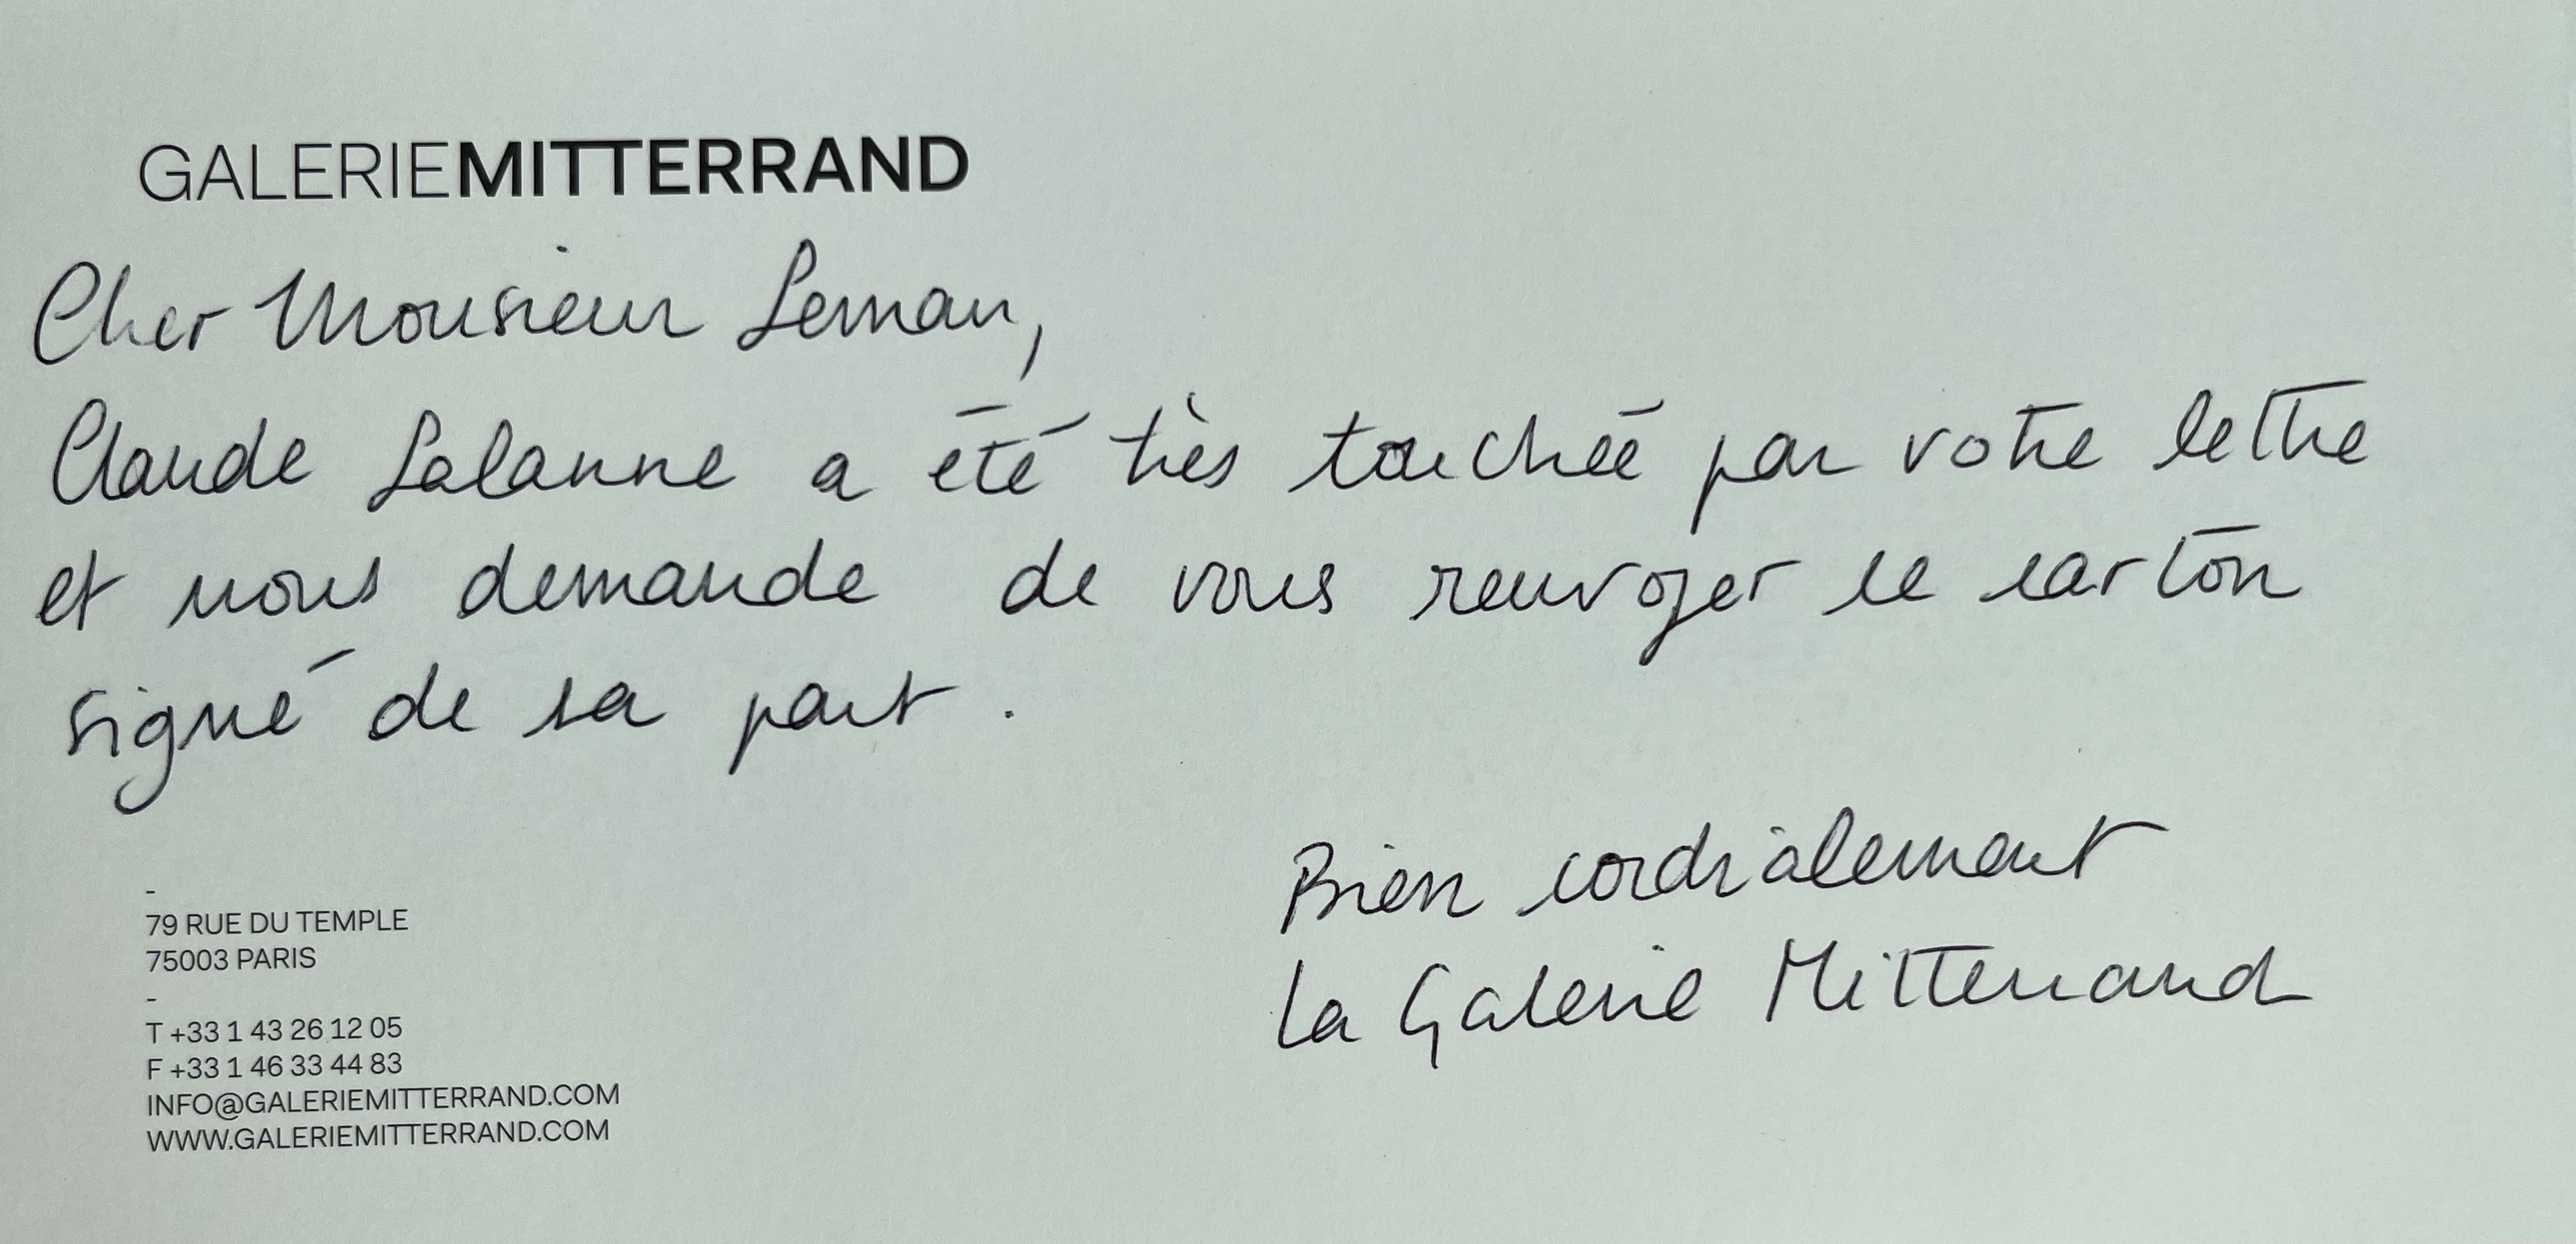 GALERIEMITTERRAND
Cher Monsieur Leman,
Claude Lalanne a été très touchée par votre lettre
et nous demande de vous renvoyer ce carton
signé de sa part.
Bien cordialement
La Galerie Mitterrand
-
79 RUE DU TEMPLE
75003 PARIS
-
T +33 1 43 26 12 05
F +33 1 46 33 44 83
INFO@GALERIEMITTERRAND.COM
WWW.GALERIEMITTERRAND.COM